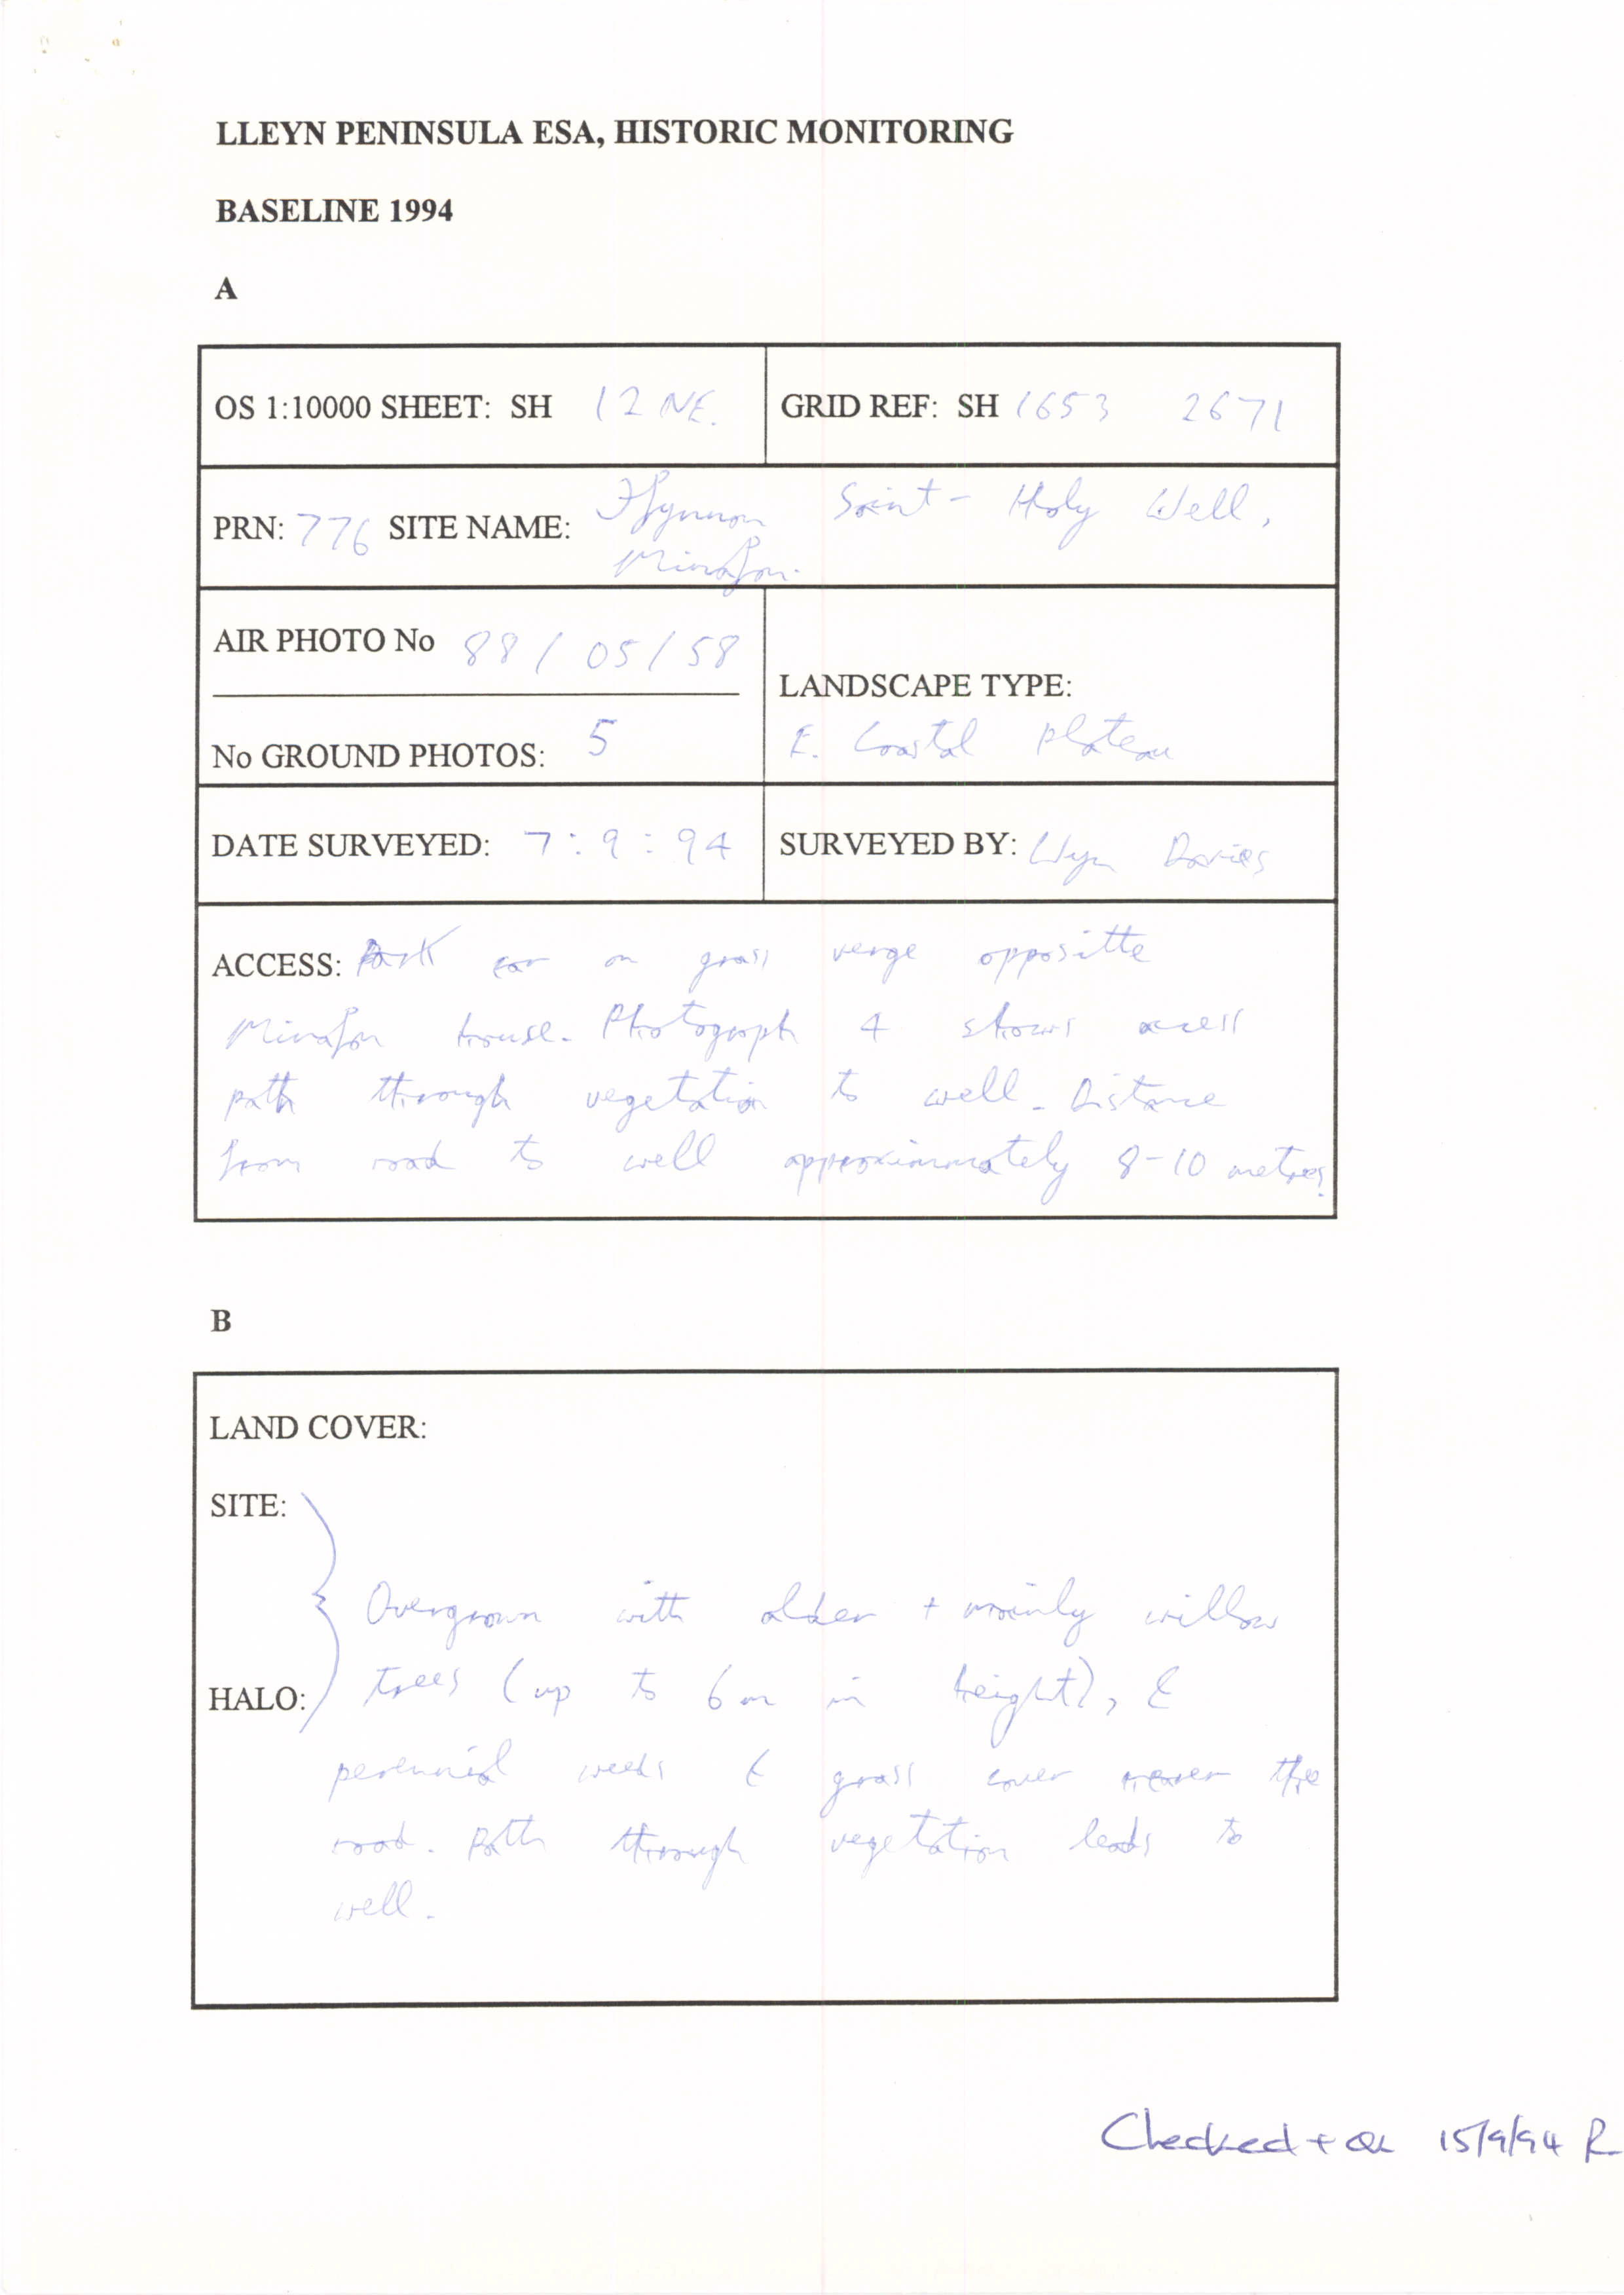 LLEYN PENINSULA ESA, HISTORIC MONITORING
BASELINE 1994
A
OS 1:10000 SHEET: SH 12 NE.
GRID REF: SH 1653 2671
PRN: 776 SITE NAME: Ffynnon Saint - Holy Well,
Minafon.
AIR PHOTO No 88/05/58
No GROUND PHOTOS: 5
LANDSCAPE TYPE:
E. Coastal Plateau
DATE SURVEYED: 7:9:94
SURVEYED BY: Wyn Davies
ACCESS: Park car on grass verge oppositte
Minafon house. Photograph 4 shows access
path through vegetation to well. Distance
from road to well approximmately 8-10 metres.
B
LAND COVER:
SITE:
Overgrown with alder + mainly willow
HALO: trees (up to 6m in height), &
perennial weeds & grass cover nearer the
road. Path through vegetation leads to
well.
Checked + OK 15/9/94 R